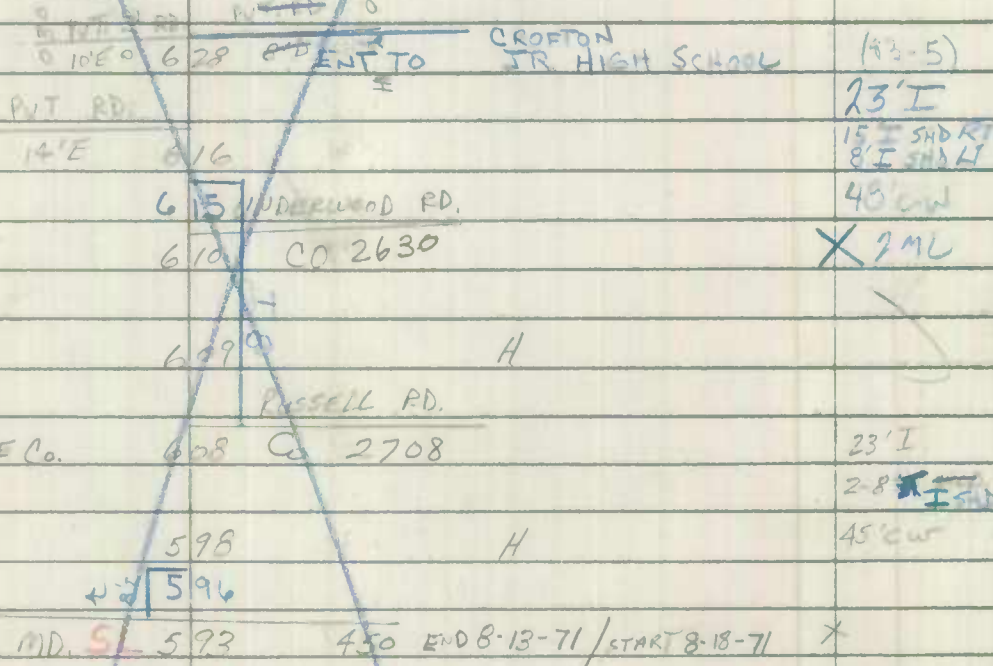 PVT RD
CROFTON
10'E 6 28 ENT TO JR HIGH SCHOOL (83-5)
PVT RD. 23' I
14'E 6 16 15' I SHD RT
8' I SHD LT
6 15 UNDERWOOD RD. 48' CW
6 10 CO 2630 X 2 ML
6 09 H
RUSSELL RD.
E Co. 6 08 Co 2708 23' I
2-8 I SHD
5 98 H 45' CW
5 96
MD. 5 93 450 END 8-13-71 / START 8-18-71 X